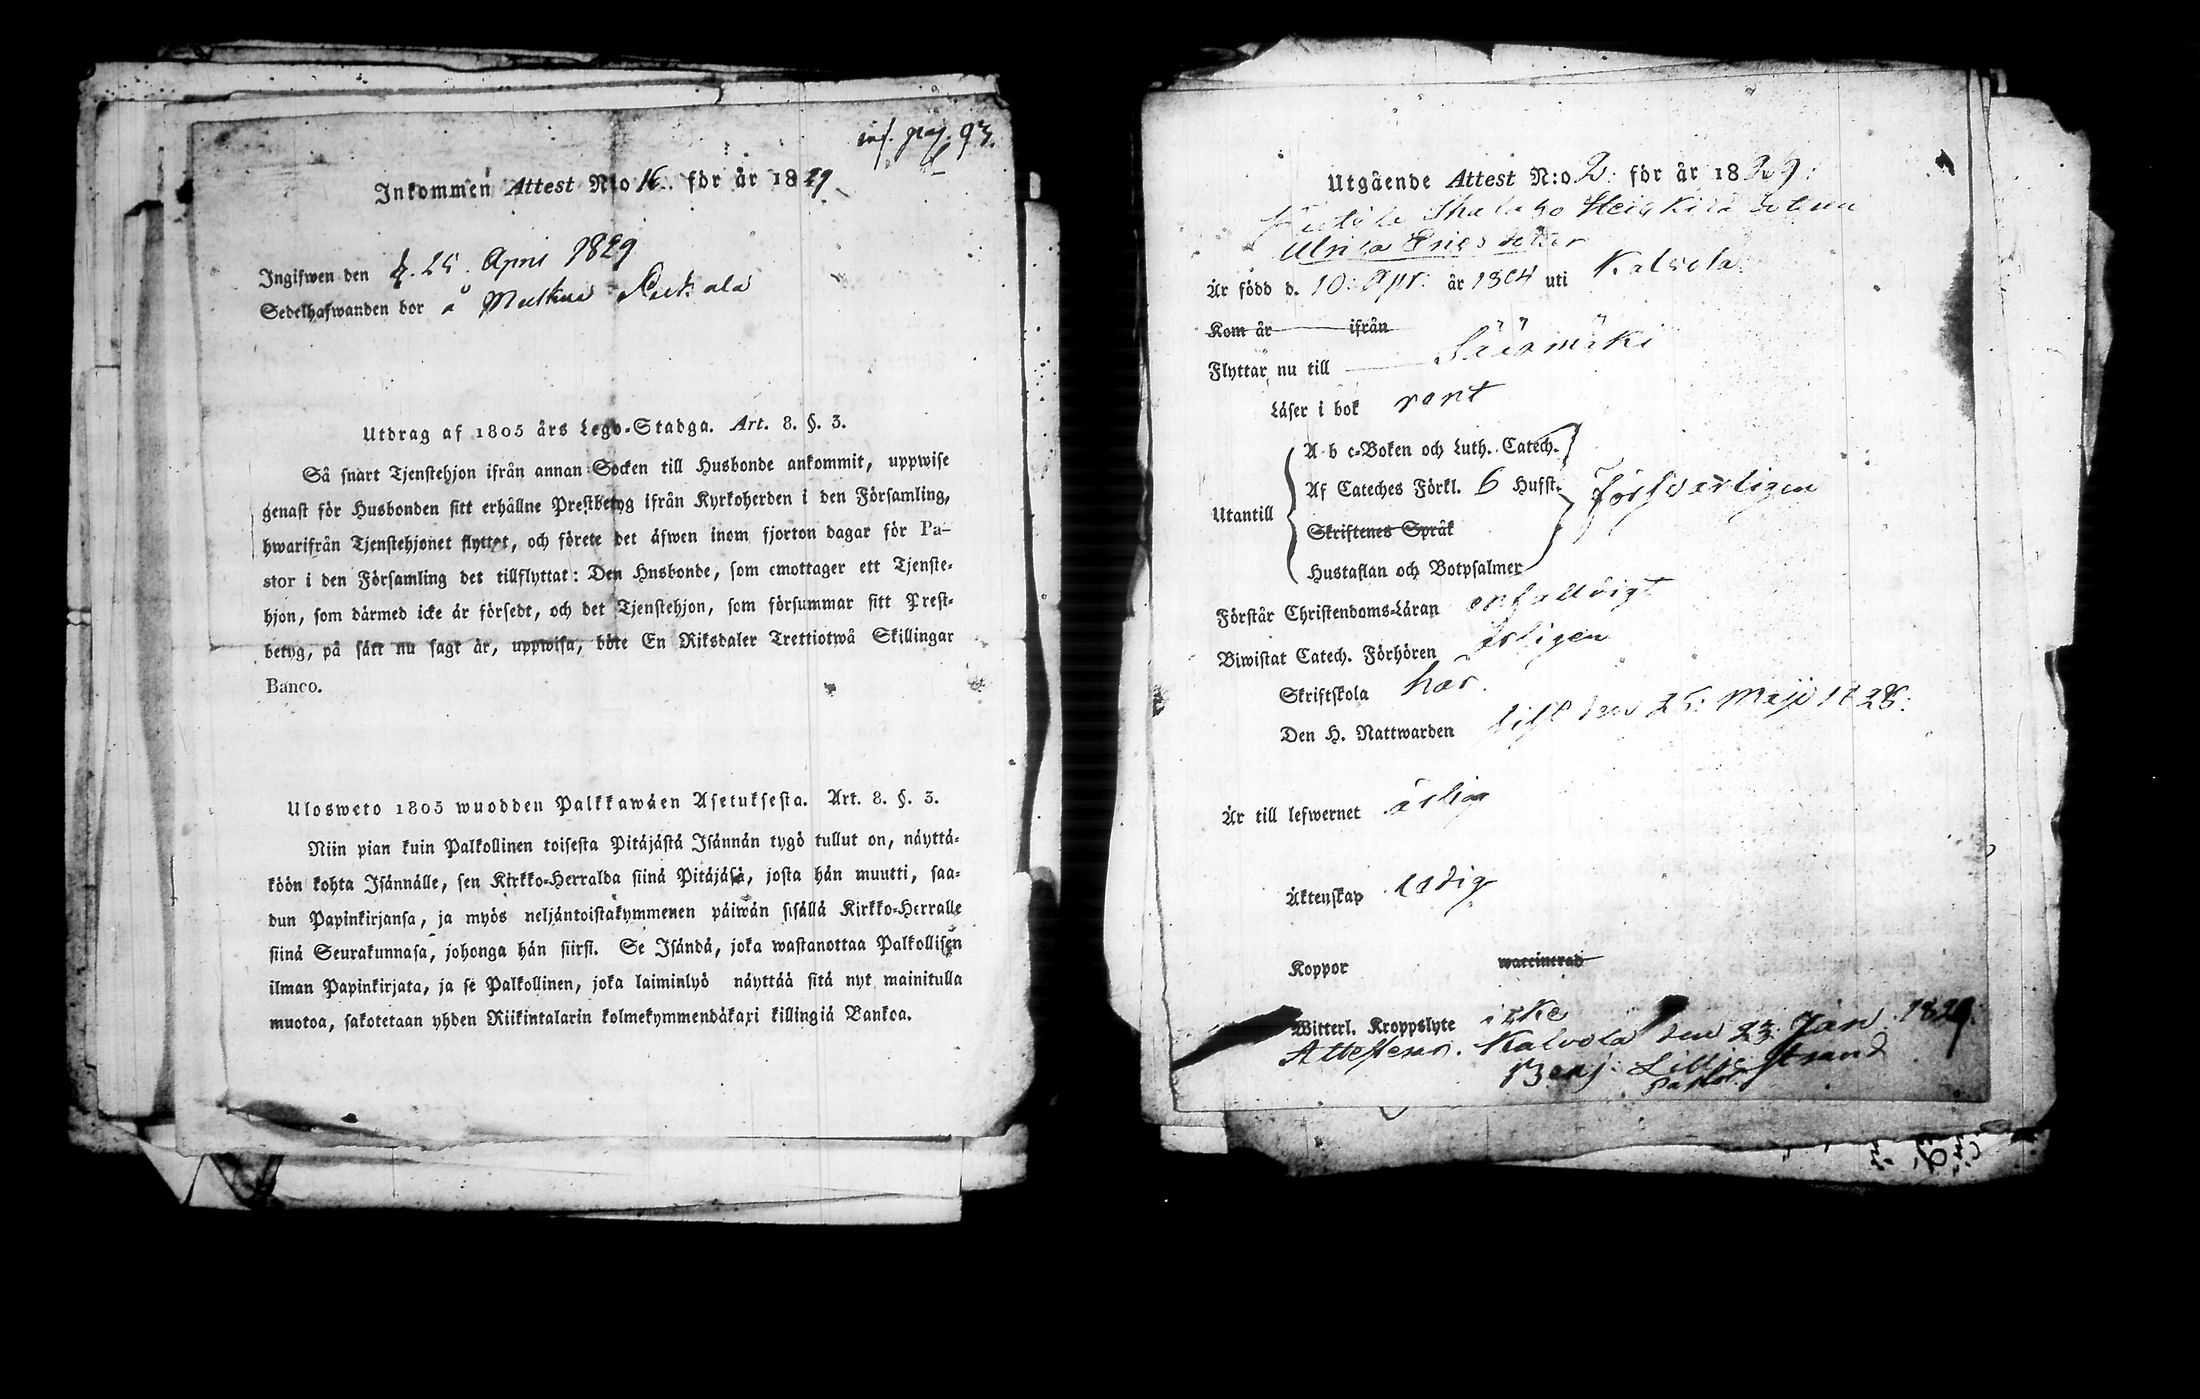 inf. pag. 93.
Inkommen Attest N:o 16. för år 1829
Ingifwen den d. 25. April 1829
Sedelhafwanden bor å
Utdrag af 1805 års Lego-Stadga. Art. 8. §. 3.
Så snart Tjenstehjon ifrån annan Socken till Husbonde ankommit, uppwise
genast för Husbonden sitt erhållne Prestbetyg ifrån Kyrkoherden i den Församling,
hwarifrån Tjenstehjonet flyttet, och förete det äfwen inom fjorton dagar för Pa-
stor i den Församling det tillflyttat: Den Husbonde, som emottager ett Tjenste-
hjon, som därmed icke är försedt, och det Tjenstehjon, som försummar sitt Prest-
betyg, på sätt nu sagt är, uppwisa, böte En Riksdaler Trettiotwå Skillingar
Banco.
Ulosweto 1805 wuodden Palkkawäen Asetuksesta. Art. 8. §. 3.
Niin pian kuin Palkollinen toisesta Pitäjästä Isännän tygö tullut on, näyttä-
köön kohta Isännälle, sen Kirkko-Herralda siinä Pitäjäsä, josta hän muutti, saa-
dun Papinkirjansa, ja myös neljäntoistakymmenen päiwän sisällä Kirkko-Herralle
siinä Seurakunnasa, johonga hän siirsi. Se Isändä, joka wastanottaa Palkollisen
ilman Papinkirjata, ja se Palkollinen, joka laiminlyö näyttää sitä nyt mainitulla
muotoa, sakotetaan yhden Riikintalarin kolmekymmendäkaxi killingiä Bankoa.
Utgående Attest N:o 2. för år 1829.
Heickilä
Ulrica Ericsdotter
Är född d. 10. Apr. år 1804 uti Kalvola
Kom år ifrån
Flyttar nu till Sääxmäki
Läser i bok rent
A b c-Boken och Luth. Catech.
Af Cateches Förkl. 6 Hufst.
Utantill försvarligen
Skriftenes Språk
Hustaflan och Botpsalmer
Förstår Christendoms-Läran enfalldigt
Biwistat Catech. Förhören årligen
Skriftskola har.
Den H. Nattwarden sist den 25. Maji 1828.
Är till lefwernet ärlig
Äktenskap ledig
Koppor waccinerad
Witterl. Kroppslyte icke
Attesterar. Kalvola den 23. Jan. 1829.
Benj: Lilljestrand
Pastor